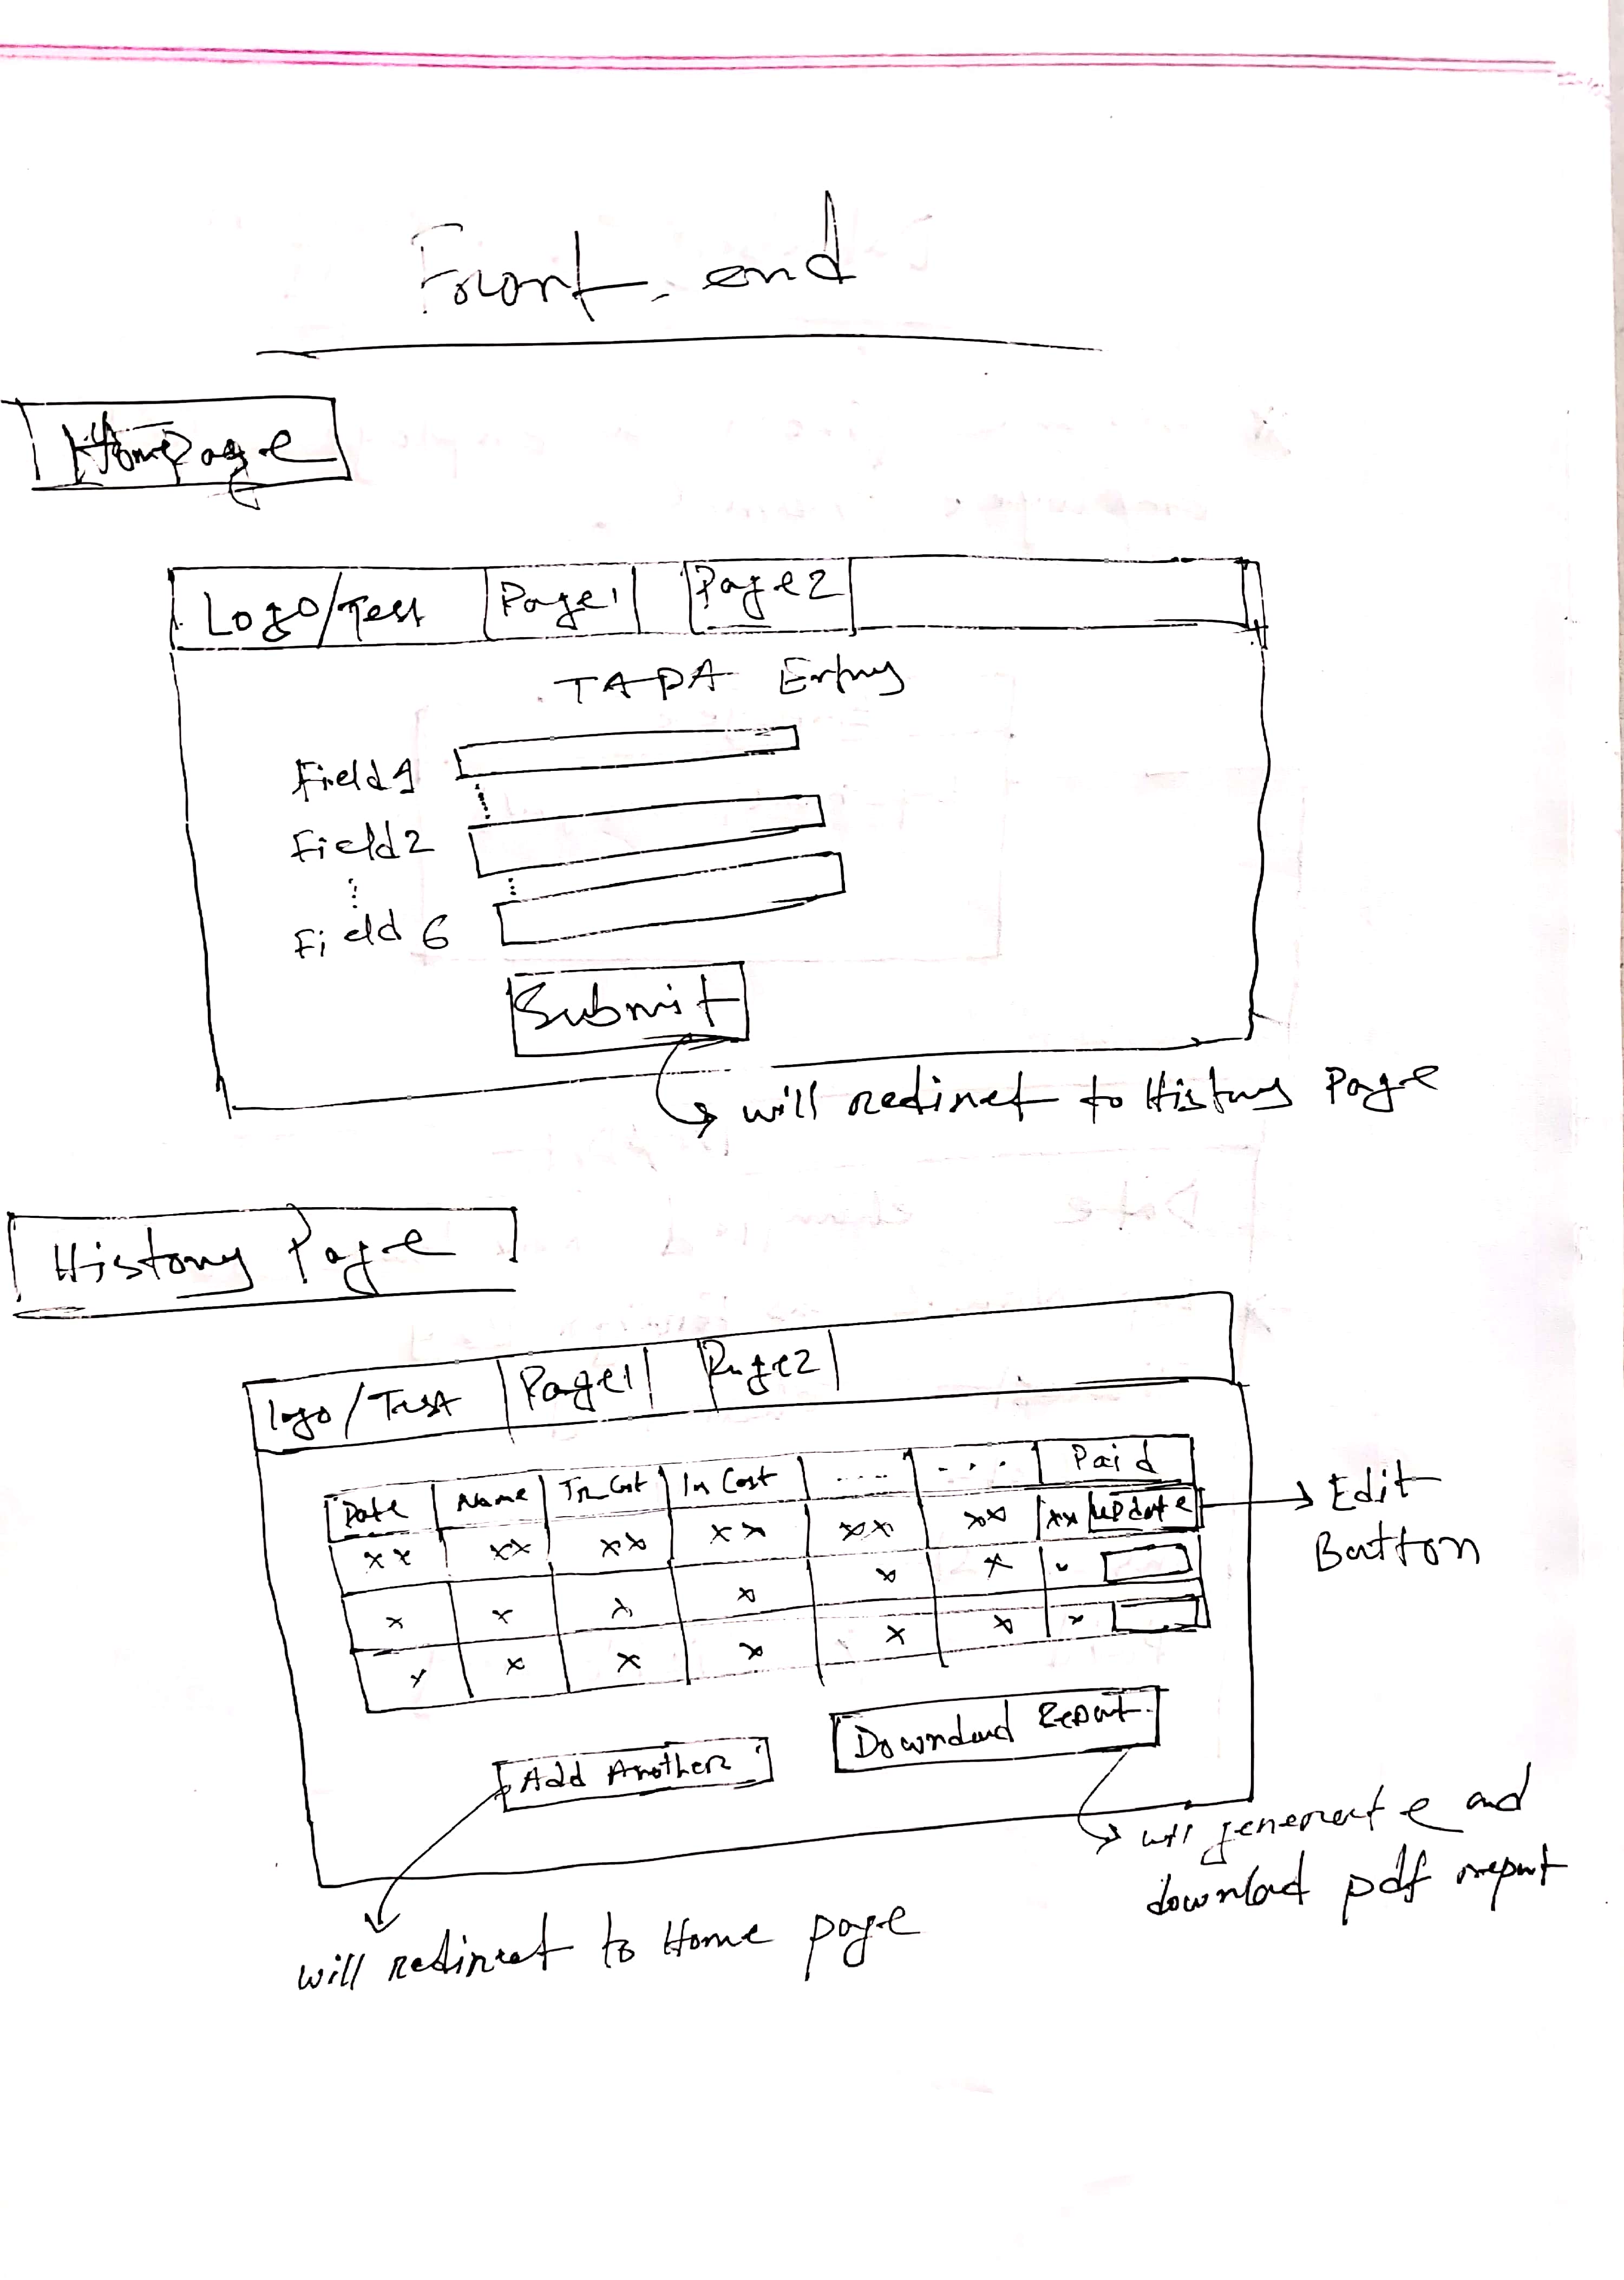 Front-end
Homepage
Logo/Text Page1 Page2
TADA Entry
Field 1
Field 2
Field 6
Submit
will redirect to History Page
History Page
logo/Text Page1 Page2
Date Name Tr_Cost In Cost .... ... Paid
xx xx xx xx xx xx xx update
Edit
Button
x x x x x x
x x x x x x x
Add Another Download Report
will generate and
download pdf report
will redirect to Home page